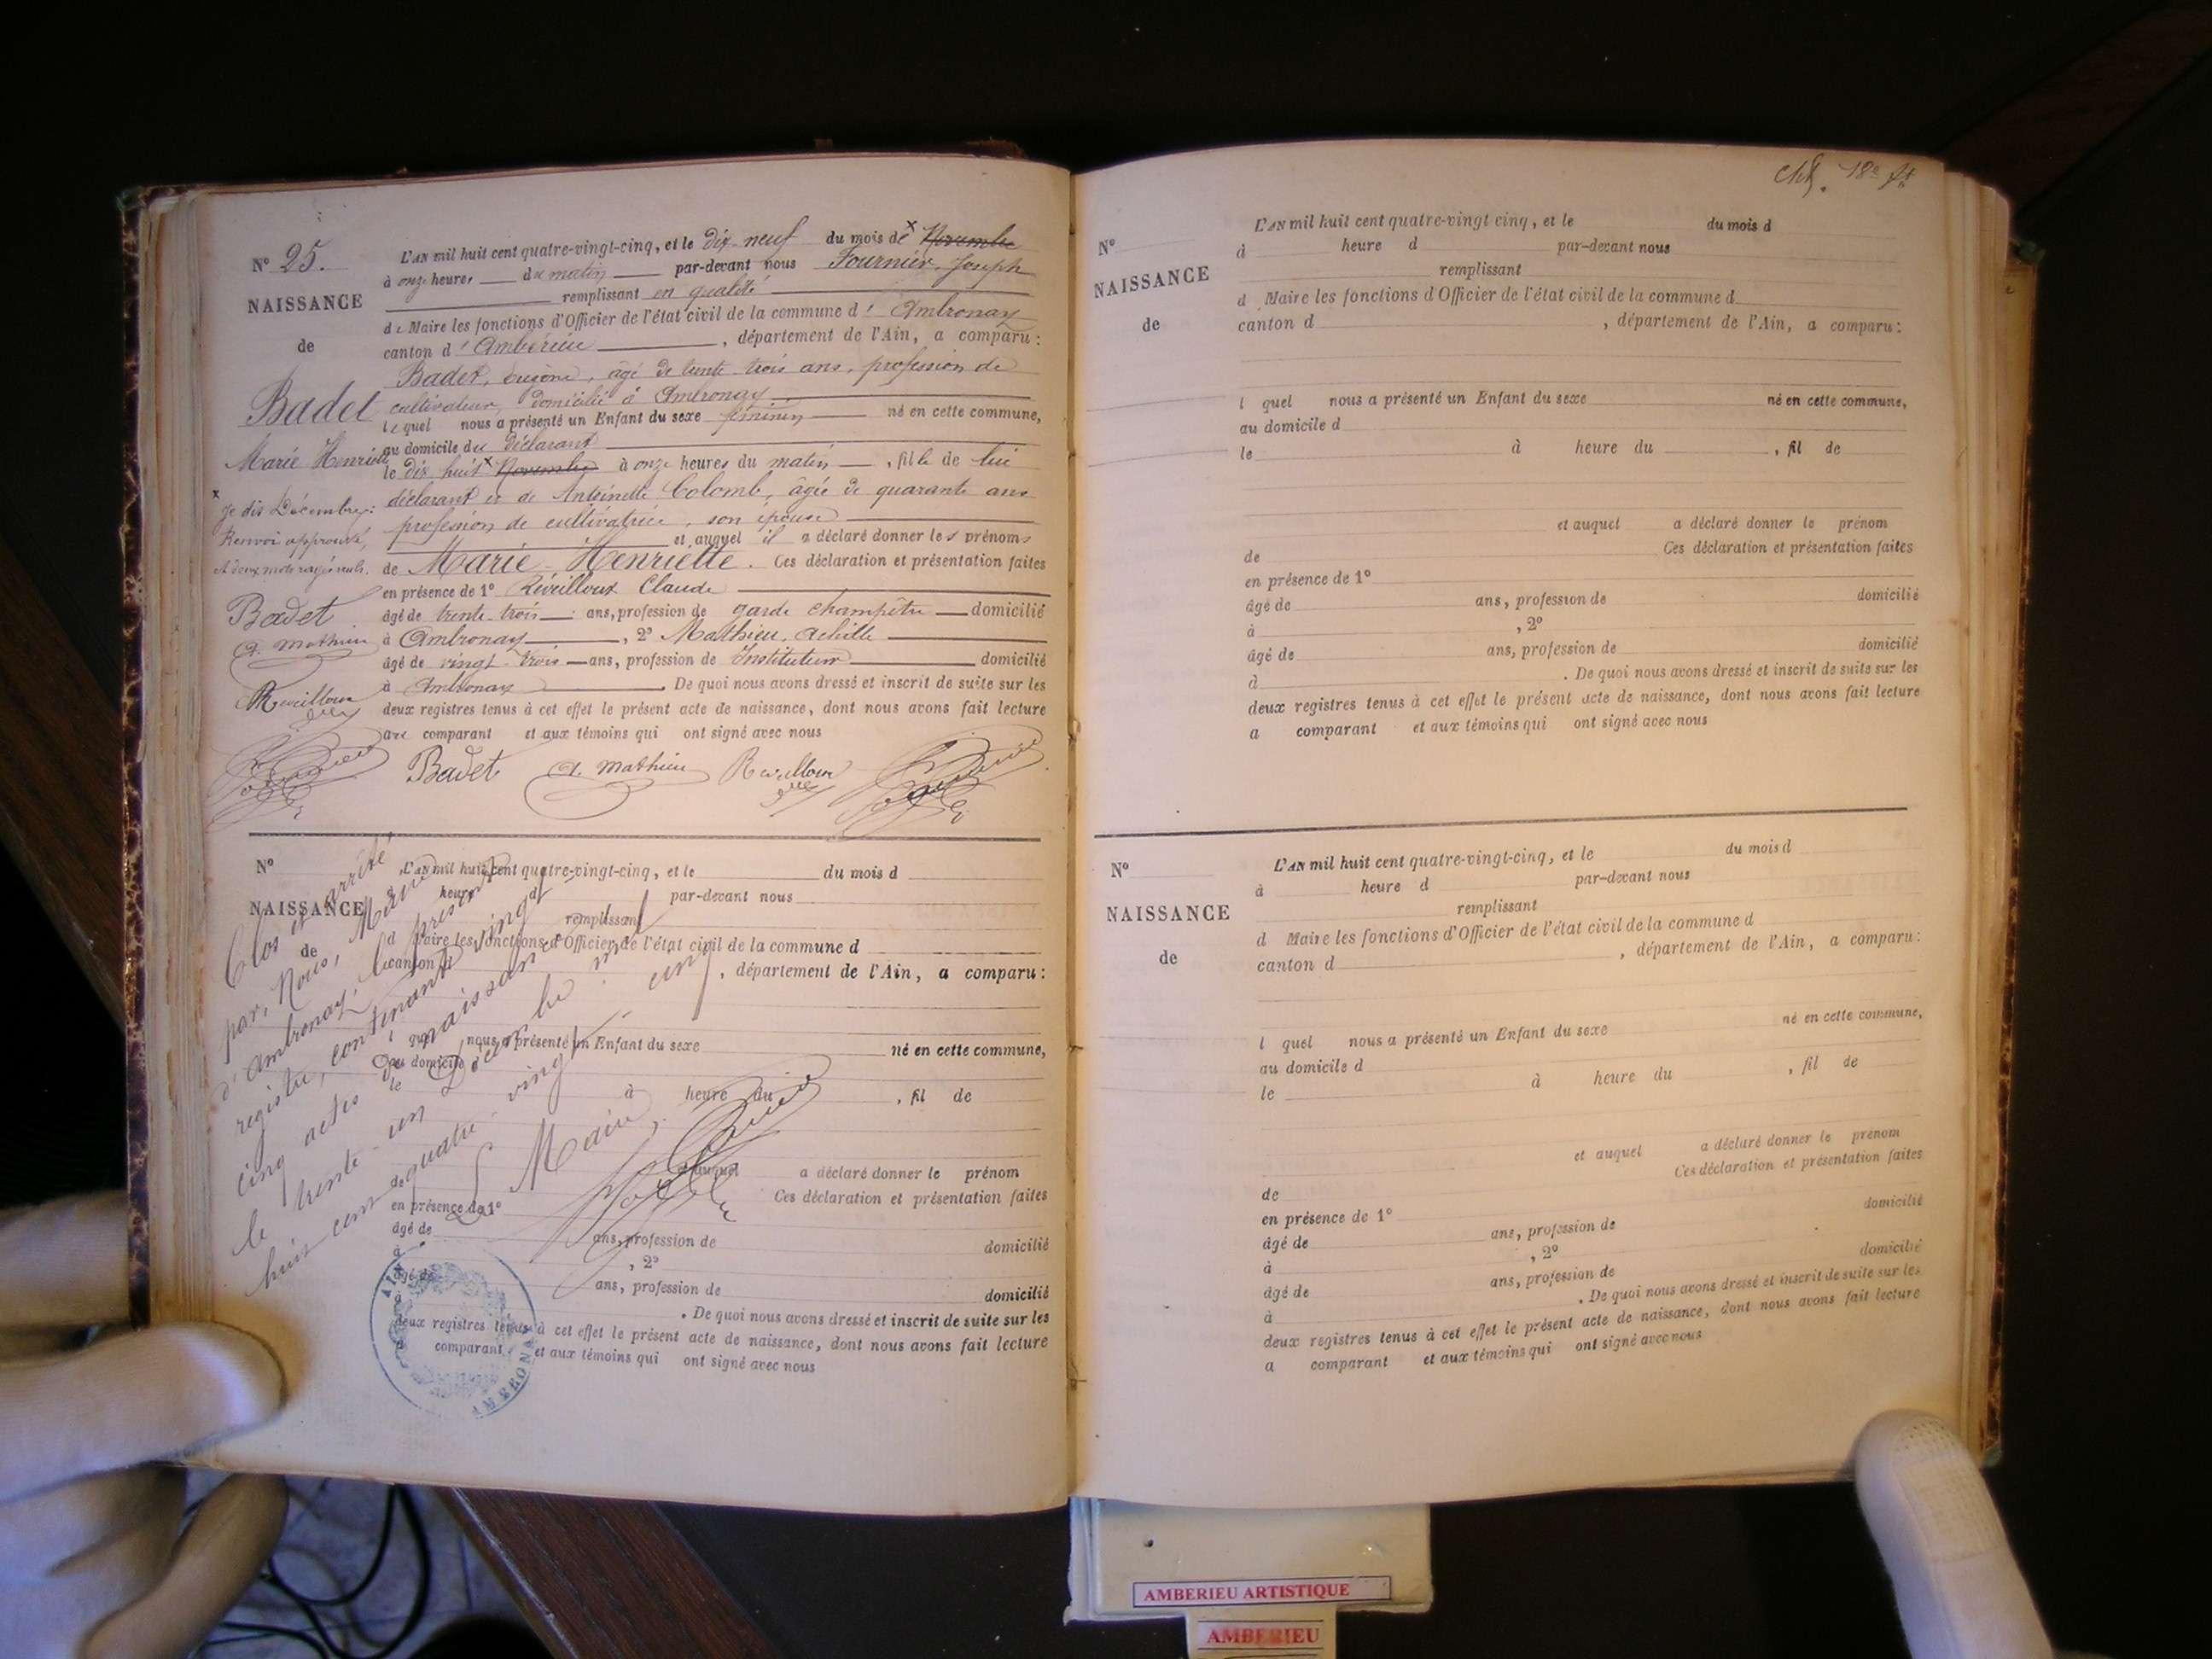 N° 25.
NAISSANCE
de
Badet
Marie Henriette
x Je dis Décembre:
Renvoi approuvé,
et deux mots rayés nuls.
Badet
A. Mathieu
Révilloux
L'AN mil huit cent quatre-vingt-cinq, et le dix-neuf du mois de x Novembre
à onze heures du matin par-devant nous Fournier, Joseph
remplissant en qualité
de Maire les fonctions d'Officier de l'état civil de la commune d' Ambronay
canton d' Ambérieu, département de l'Ain, a comparu:
Badet, Eugène, âgé de trente trois ans, profession de
cultivateur, domicilié à Ambronay
lequel nous a présenté un Enfant du sexe féminin né en cette commune,
au domicile du déclarant
le dix huit x Novembre à onze heures du matin, fille de lui
déclarant et de Antoinette Colomb, âgée de quarante ans
profession de cultivatrice, son épouse
et auquel il a déclaré donner les prénoms
de Marie-Henriette. Ces déclaration et présentation faites
en présence de 1° Révilloux Claude
âgé de trente-trois ans, profession de garde champêtre domicilié
à Ambronay, 2° Mathieu, Achille
âgé de vingt-trois ans, profession de Instituteur domicilié
à Ambronay. De quoi nous avons dressé et inscrit de suite sur les
deux registres tenus à cet effet le présent acte de naissance, dont nous avons fait lecture
aux comparant et aux témoins qui ont signé avec nous
Badet A. Mathieu Révilloux
N°
NAISSANCE
de
L'AN mil huit cent quatre-vingt-cinq, et le du mois d
heure d par-devant nous
remplissant
d Maire les fonctions d'Officier de l'état civil de la commune d
canton d, département de l'Ain, a comparu:
l quel nous a présenté un Enfant du sexe né en cette commune,
au domicile d
le à heure du, fil de
et auquel a déclaré donner le prénom
de Ces déclaration et présentation faites
en présence de 1°
âgé de ans, profession de domicilié
à, 2°
âgé de ans, profession de domicilié
à. De quoi nous avons dressé et inscrit de suite sur les
deux registres tenus à cet effet le présent acte de naissance, dont nous avons fait lecture
comparant et aux témoins qui ont signé avec nous
Clos et arrêté
par, Nous, Maire
d'Ambronay, le présent
registre, contenant vingt
cinq actes de naissance
le trente-un Décembre mil
huit cent quatre-vingt cinq
Le Maire,
AIN
AMBRONAY
18e
N°
NAISSANCE
de
L'AN mil huit cent quatre-vingt cinq, et le du mois d
à heure d par-devant nous
remplissant
d Maire les fonctions d'Officier de l'état civil de la commune d
canton d, département de l'Ain, a comparu:
l quel nous a présenté un Enfant du sexe né en cette commune,
au domicile d
le à heure du, fil de
et auquel a déclaré donner le prénom
de Ces déclaration et présentation faites
en présence de 1°
âgé de ans, profession de domicilié
à, 2°
âgé de ans, profession de domicilié
à. De quoi nous avons dressé et inscrit de suite sur les
deux registres tenus à cet effet le présent acte de naissance, dont nous avons fait lecture
a comparant et aux témoins qui ont signé avec nous
N°
NAISSANCE
de
L'AN mil huit cent quatre-vingt-cinq, et le du mois d
à heure d par-devant nous
remplissant
d Maire les fonctions d'Officier de l'état civil de la commune d
canton d, département de l'Ain, a comparu:
l quel nous a présenté un Enfant du sexe né en cette commune,
au domicile d
le à heure du, fil de
et auquel a déclaré donner le prénom
de Ces déclaration et présentation faites
en présence de 1°
âgé de ans, profession de domicilié
à, 2°
âgé de ans, profession de domicilié
à. De quoi nous avons dressé et inscrit de suite sur les
deux registres tenus à cet effet le présent acte de naissance, dont nous avons fait lecture
a comparant et aux témoins qui ont signé avec nous
AMBERIEU ARTISTIQUE
AMBERIEU